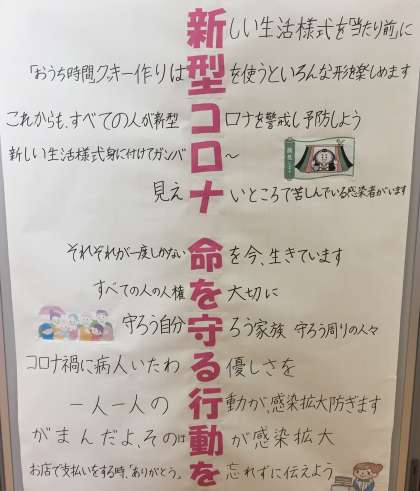 新しい生活様式を「当たり前」に
「おうち時間」クッキー作りは型を使うといろんな形を楽しめます
これからも、すべての人が新型コロナを警戒し予防しよう
新しい生活様式身に付けてガンバロ〜
見えナいところで苦しんでいる感染者がいます
それぞれが一度しかない命を今、生きています
すべての人の人権を大切に
守ろう自分守ろう家族 守ろう周りの人々
コロナ禍に病人いたわる優しさを
一人一人の行動が、感染拡大防ぎます
がまんだよ、そのは動が感染拡大
お店で支払いをする時、「ありがとう。」を忘れずに伝えよう